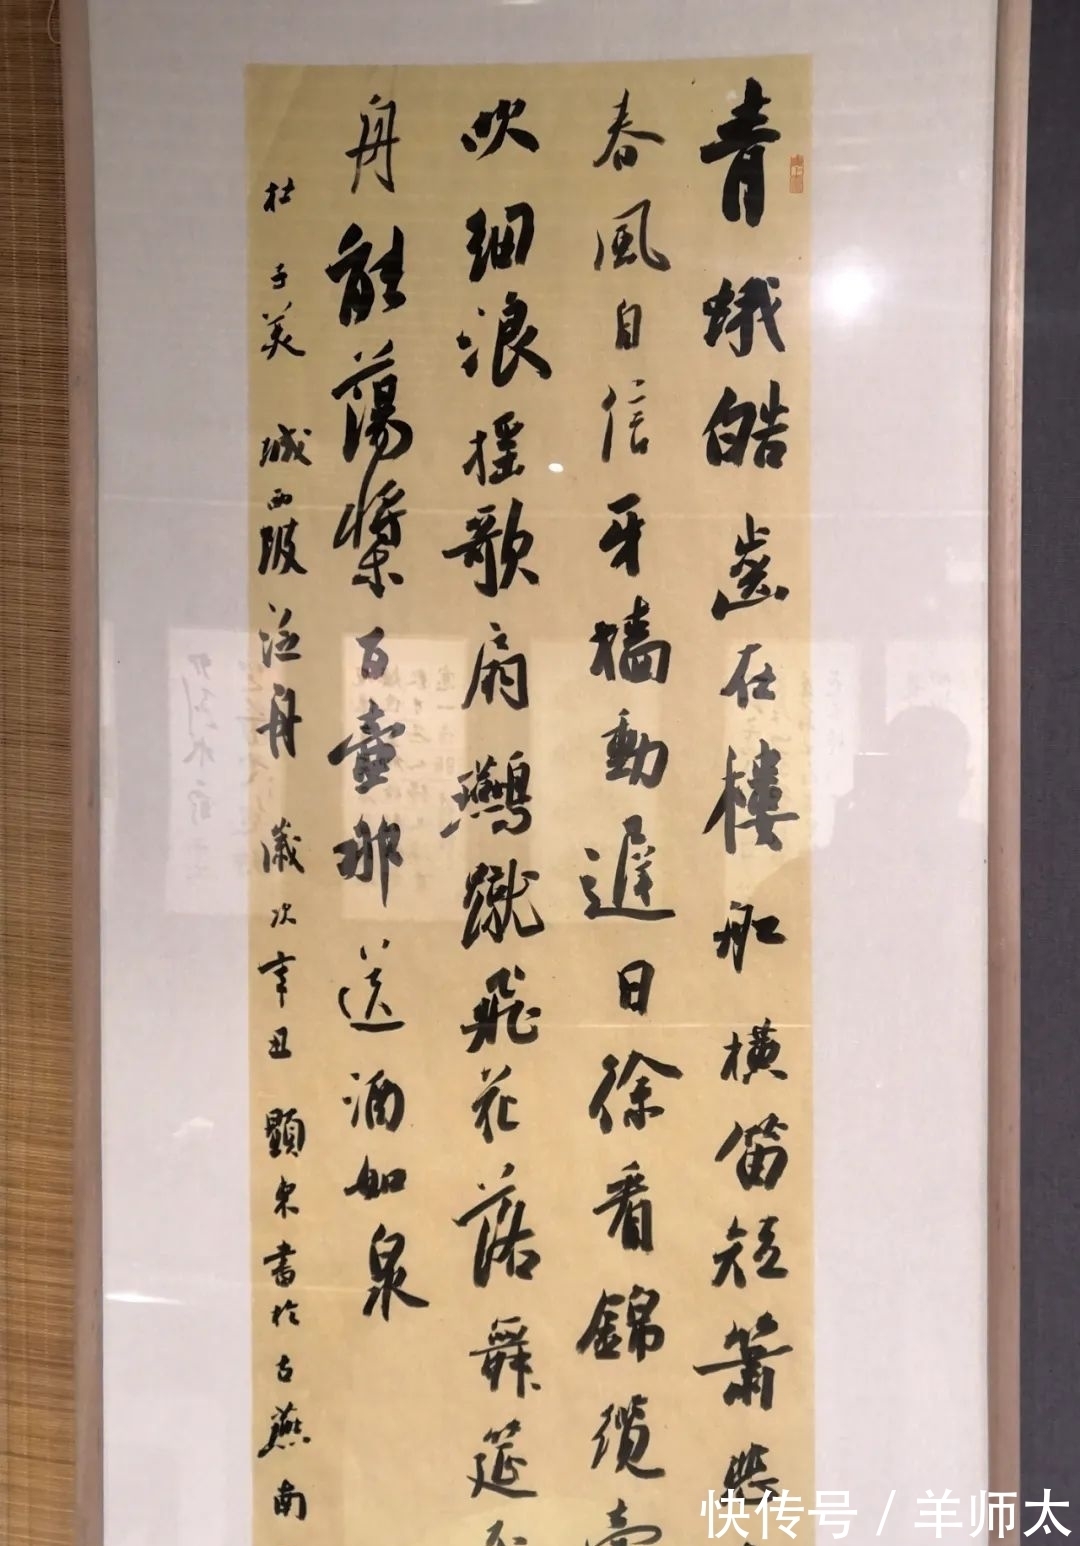 青蛾皓齒在樓舡橫笛短簫悲
春風自信牙檣動遲日徐看錦纜
吹細浪摇歌扇鷰蹴飛花落舞筵
舟能蕩槳百壺那送酒如泉
杜子美 城西陂泛舟 歲次辛丑 顯 書於古燕南
快传号 / 羊师太